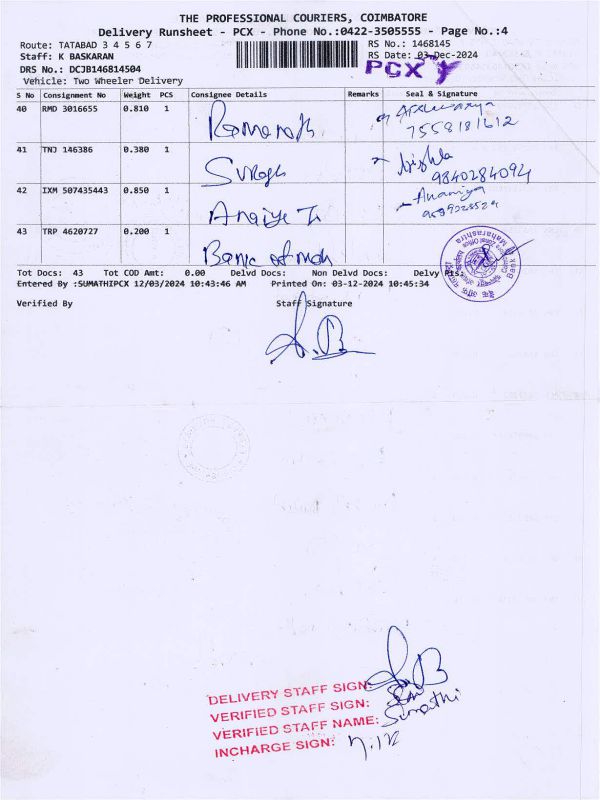 THE PROFESSIONAL COURIERS, COIMBATORE
Delivery Runsheet - PCX - Phone No.:0422-3505555 - Page No.:4
Route: TATABAD 3 4 5 6 7
RS No.: 1468145
Staff: K BASKARAN
RS Date: 03-Dec-2024
DRS No.: DCJB146814504
PCX
Vehicle: Two Wheeler Delivery
S No Consignment No Weight PCS Consignee Details Remarks Seal & Signature
40 RMD 3016655 0.810 1
7558181612
41 TNJ 146386 0.380 1 Suresh
9840284094
42 IXM 507435443 0.850 1
Ananiya
43 TRP 4620727 0.200 1 Bank of mah
Bank of Maharashtra
Tot Docs: 43 Tot COD Amt: 0.00 Delvd Docs: Non Delvd Docs: Delvy Pts:
Entered By :SUMATHIPCX 12/03/2024 10:43:46 AM Printed On: 03-12-2024 10:45:34
Verified By Staff Signature
DELIVERY STAFF SIGN:
VERIFIED STAFF SIGN:
VERIFIED STAFF NAME: Sumathi
INCHARGE SIGN: